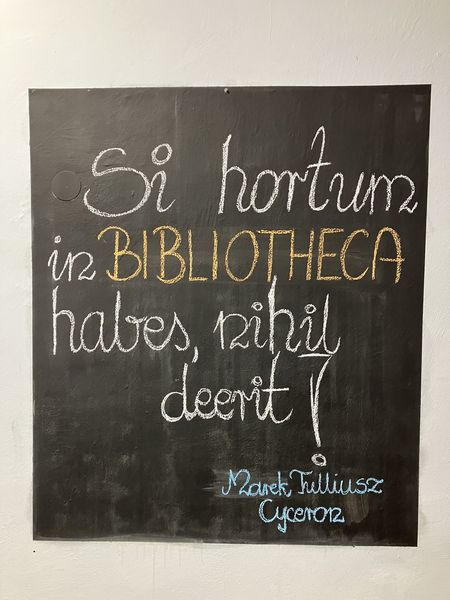 Si hortum
in BIBLIOTHECA
habes, nihil
deerit!
Marek Tulliusz
Cyceron